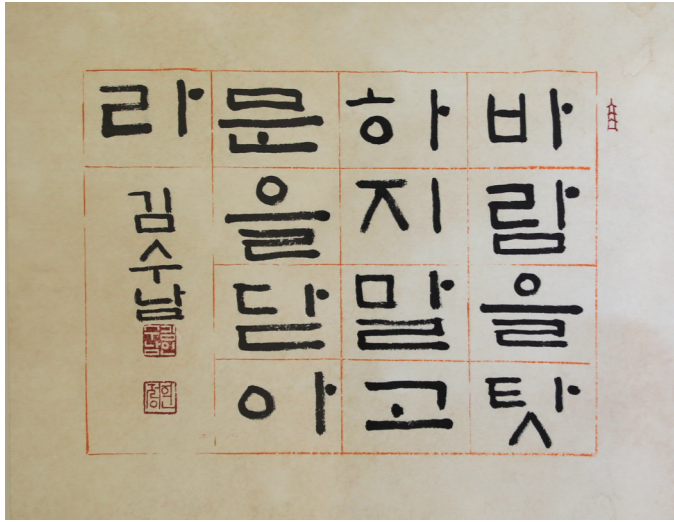 바람을탓
하지말고
문을닫아
라
김수남